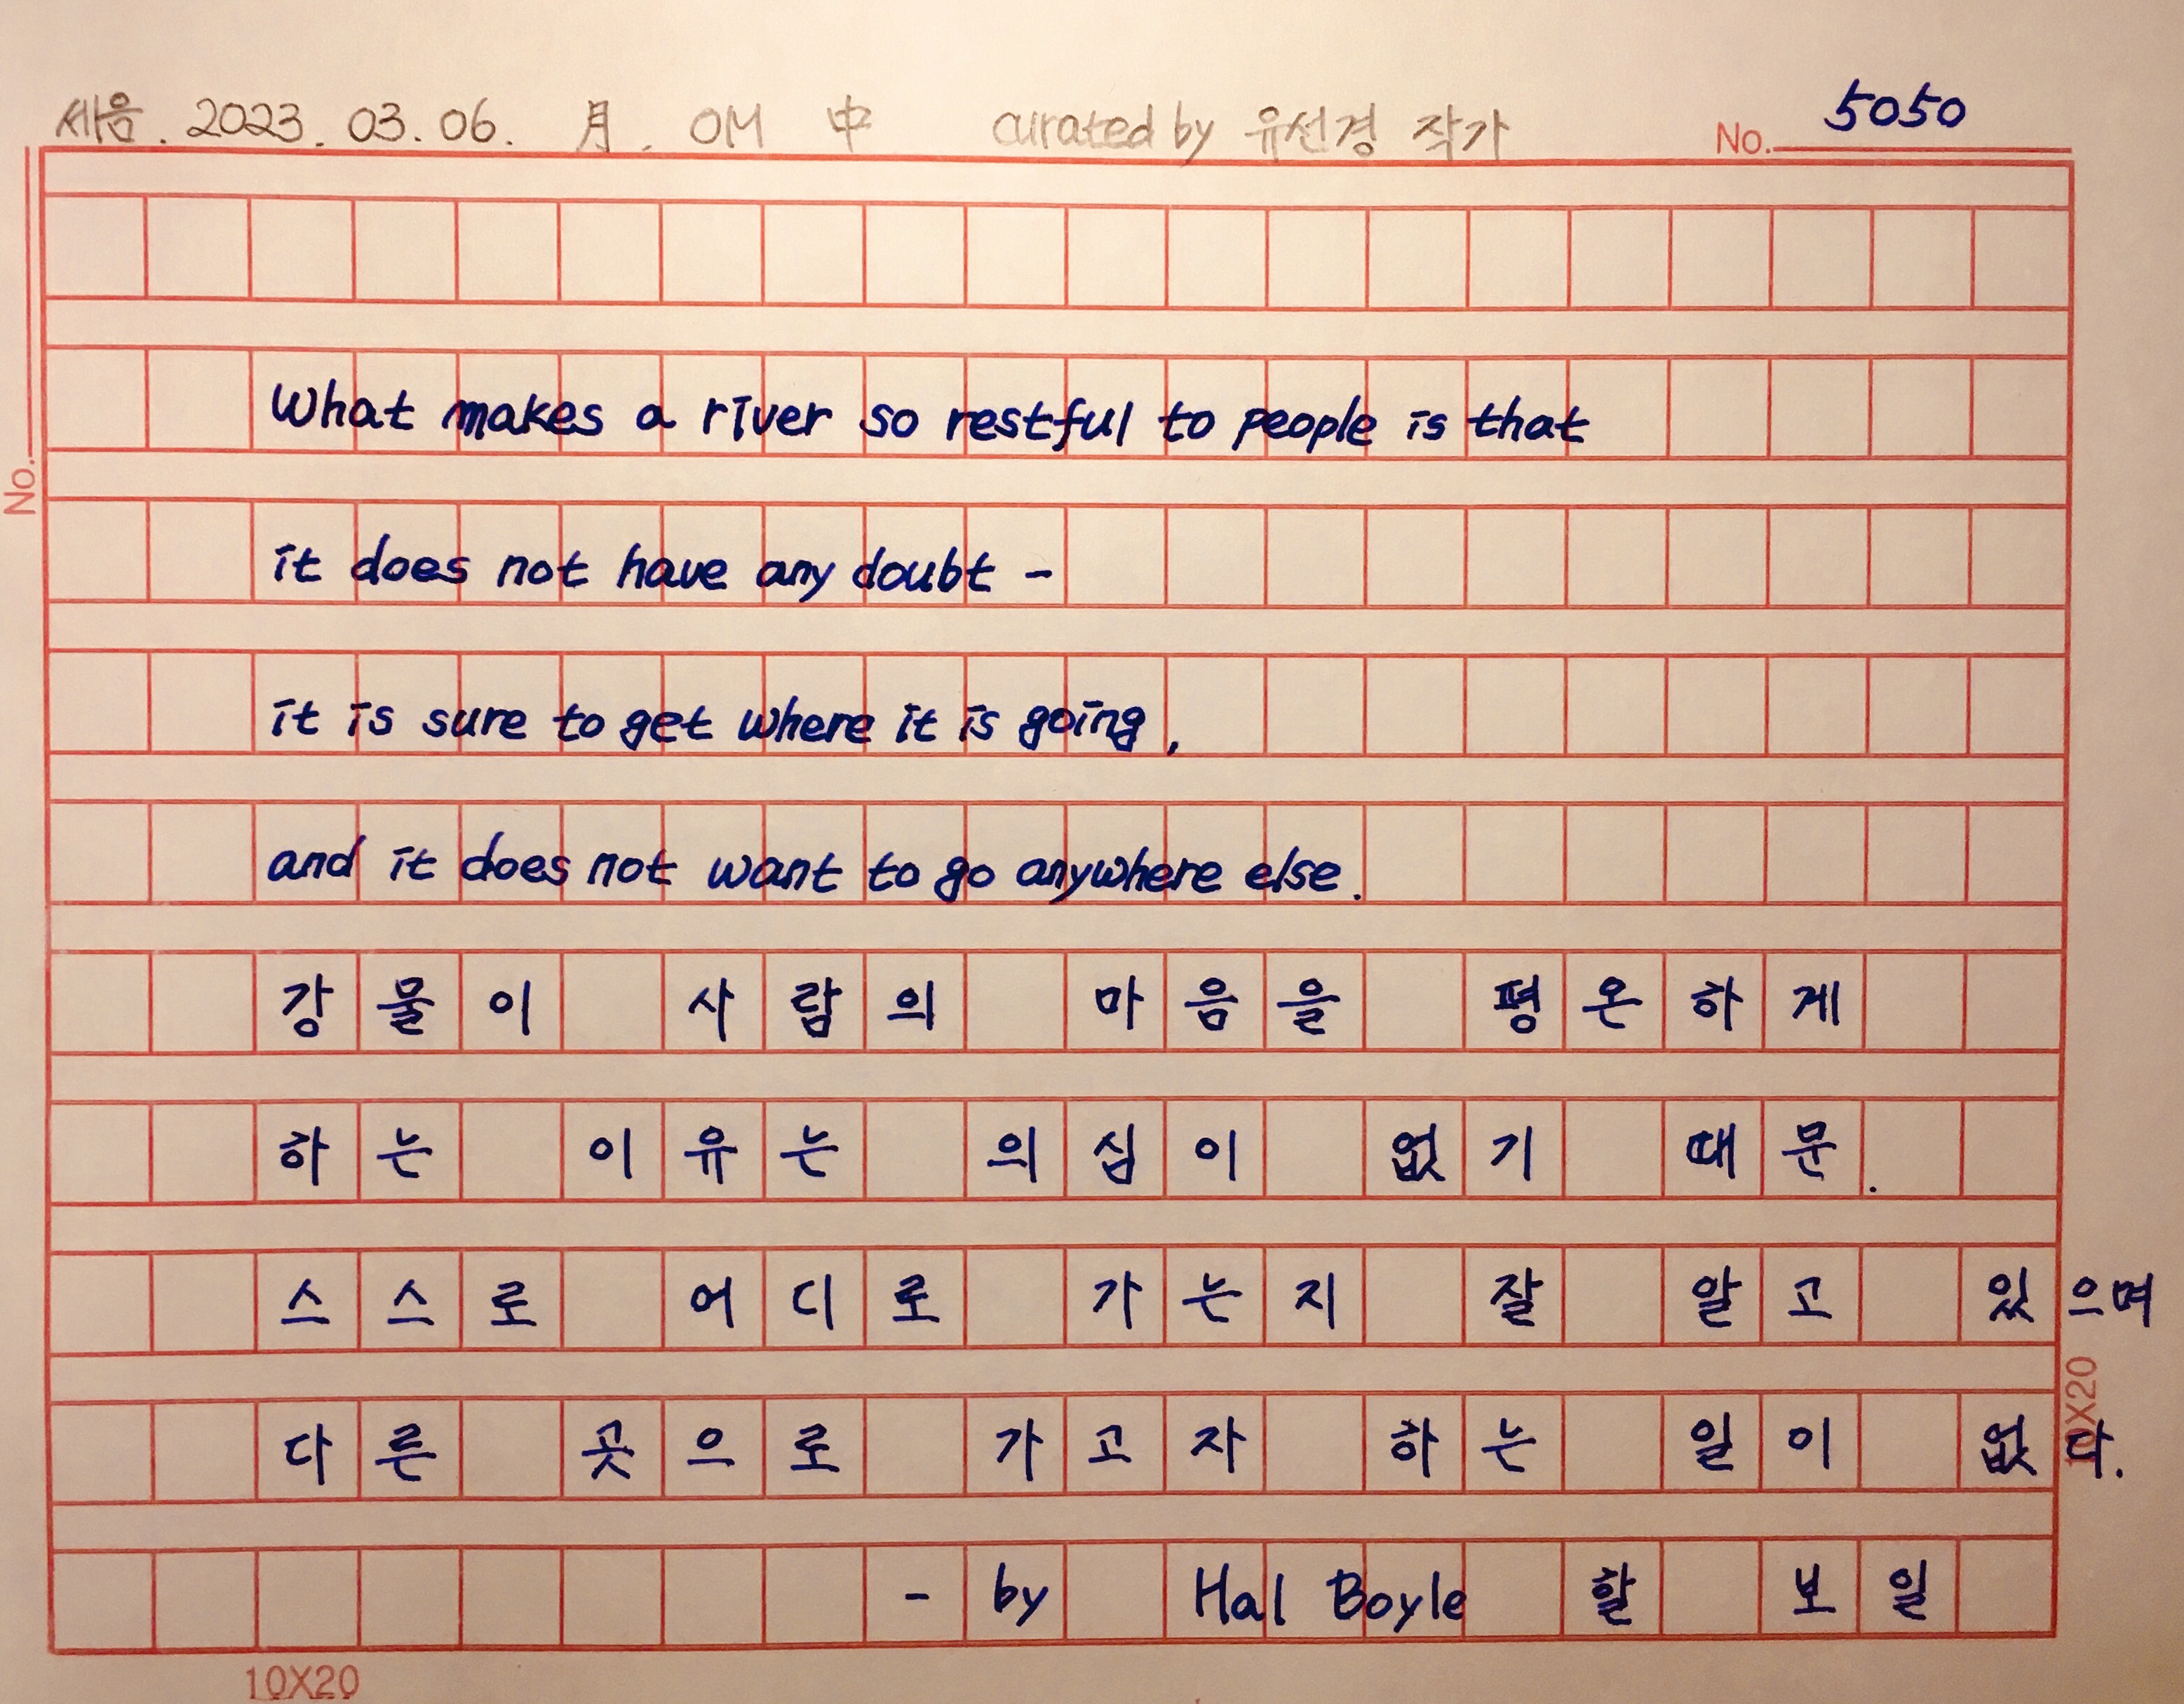 세음. 2023. 03. 06. 月. OM 中 curated by 유선경 작가 No. 5050
No.
What makes a river so restful to people is that
it does not have any doubt -
it is sure to get where it is going,
and it does not want to go anywhere else.
강물이 사람의 마음을 평온하게
하는 이유는 의심이 없기 때문.
스스로 어디로 가는지 잘 알고 있으며
다른 곳으로 가고자 하는 일이 없다.
10X20
- by Hal Boyle 할 보일
10X20